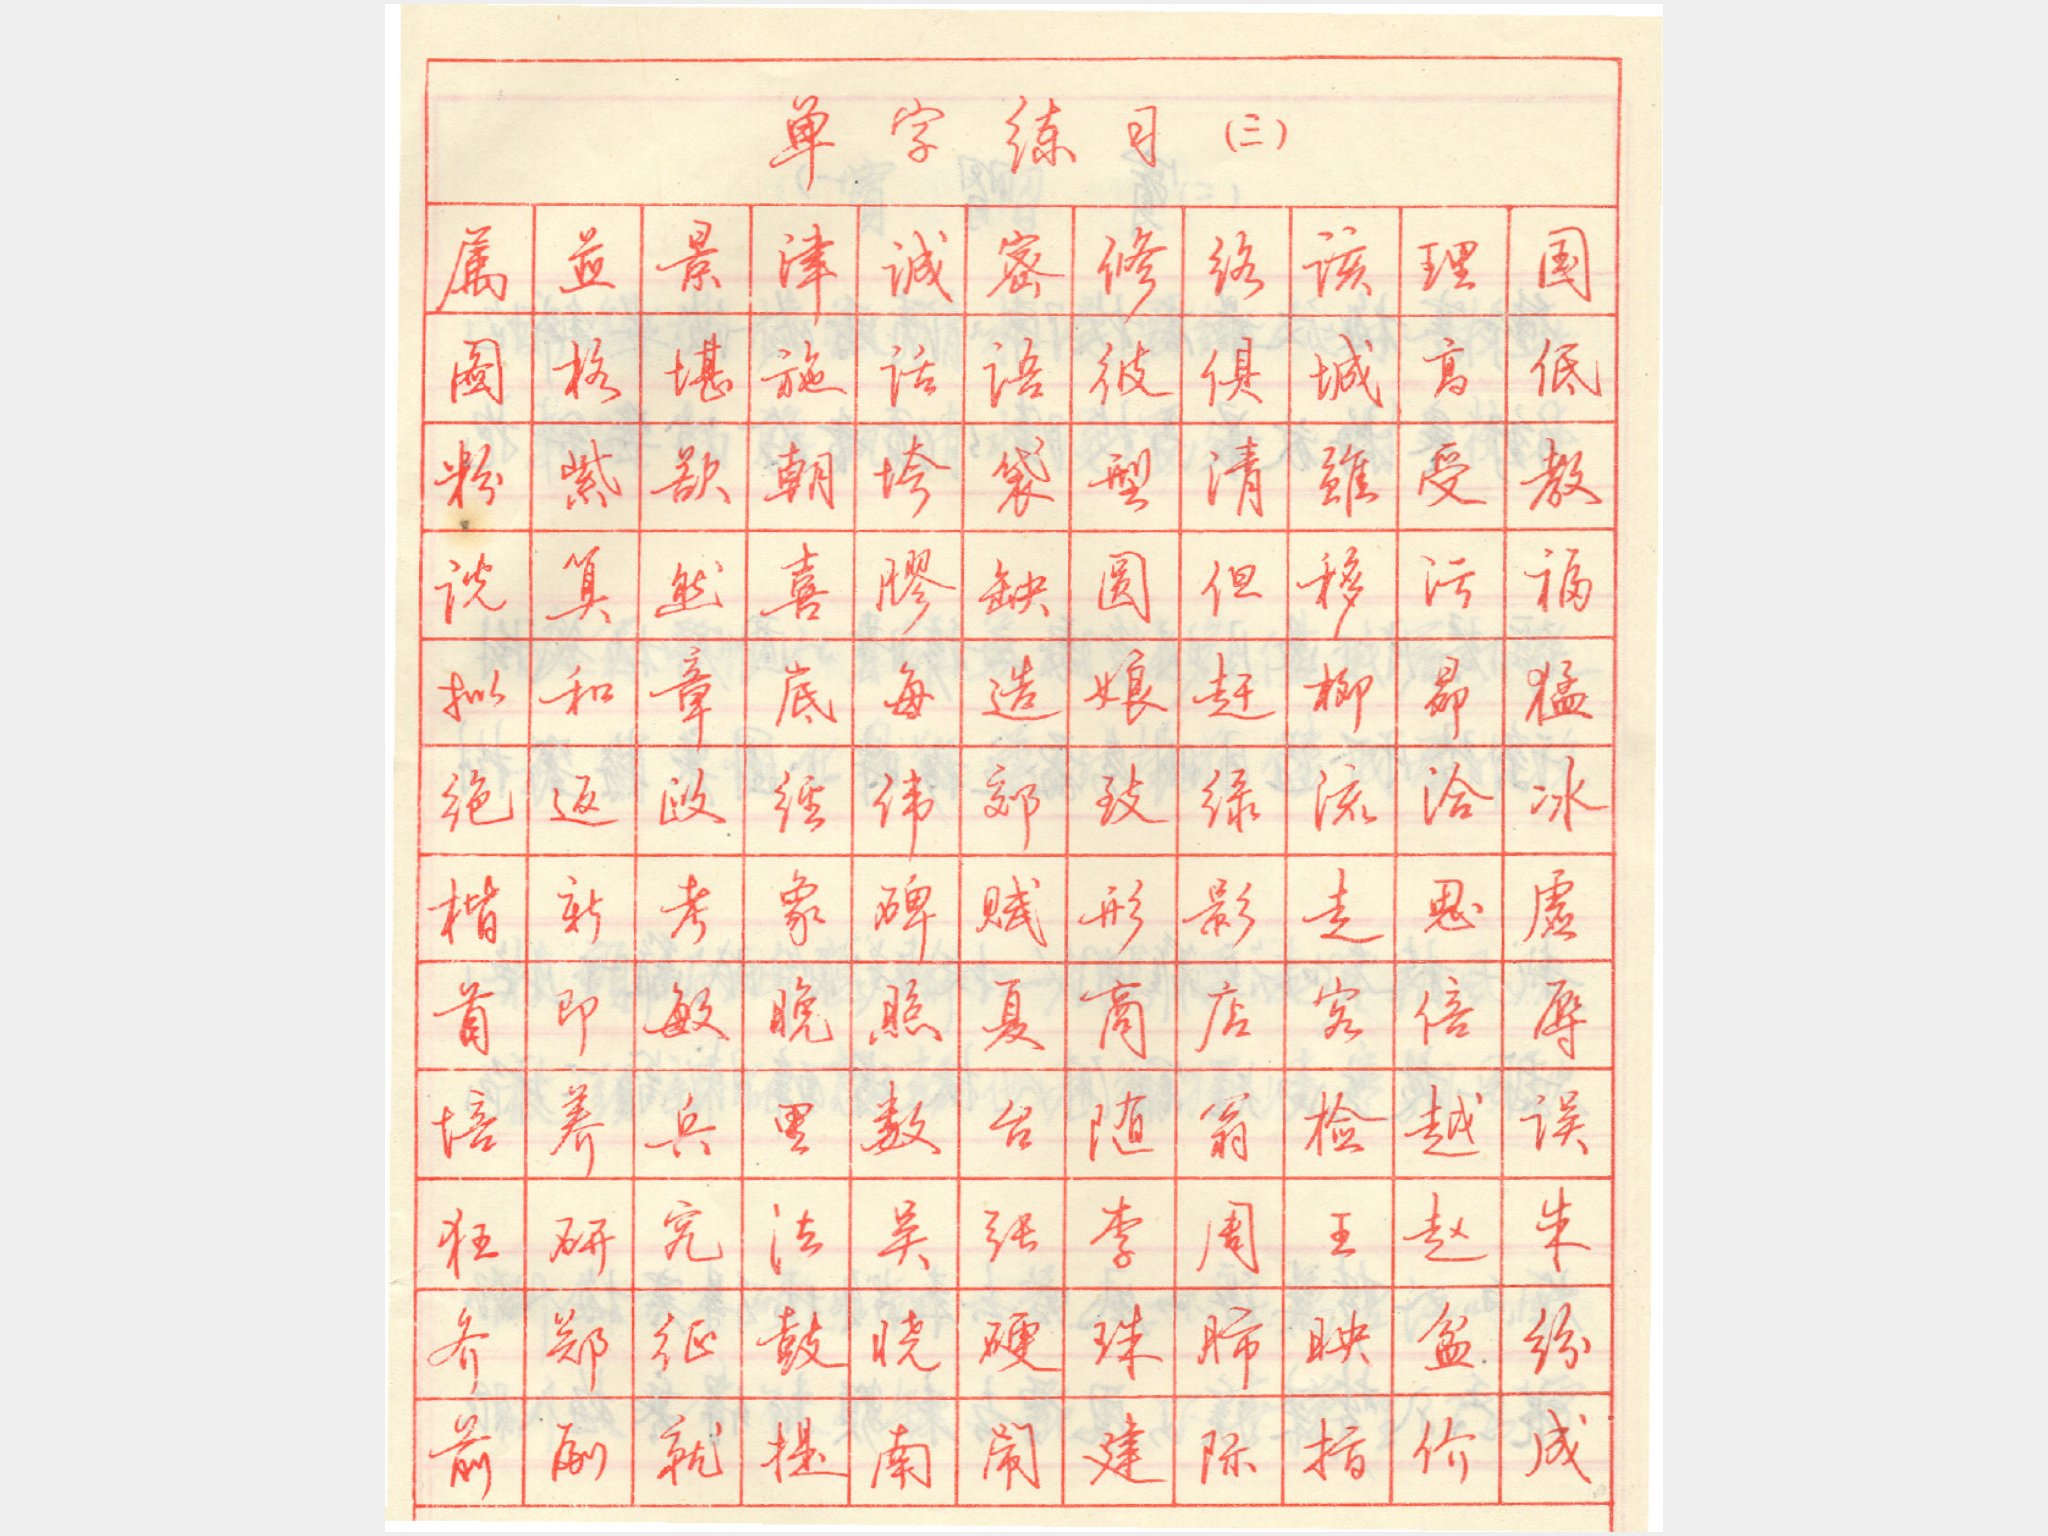 单字练习(三)
属益景津诚密修络该理国
图格堪施话语彼俱城高低
粉紫欲朝垮袋型清虽受教
说算然喜胶缺圆但移污福
拟和章底每造娘赶柳昂猛
绝返政经伟郊致绿流洽冰
楷新考象碑赋形影走思虚
首即敏晚照夏商店客倍辱
培养兵里数台随翁检越误
狂研究法吴张李周王赵朱
乔郑征鼓晓硬珠肺映盆纷
前副就提南闹建际指价成